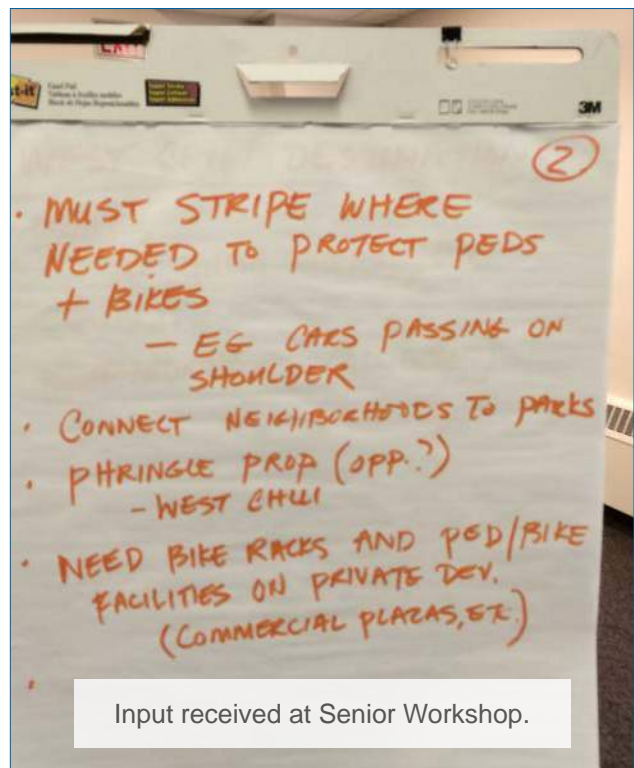 EXIT
st-it
3M
2
• MUST STRIPE WHERE
NEEDED TO PROTECT PEDS
+ BIKES
– EG CARS PASSING ON
SHOULDER
• CONNECT NEIGHBORHOODS TO PARKS
• PHRINGLE PROP (OPP.?)
– WEST CHILI
• NEED BIKE RACKS AND PED/BIKE
FACILITIES ON PRIVATE DEV.
(COMMERCIAL PLAZAS, ETC.)
•
Input received at Senior Workshop.